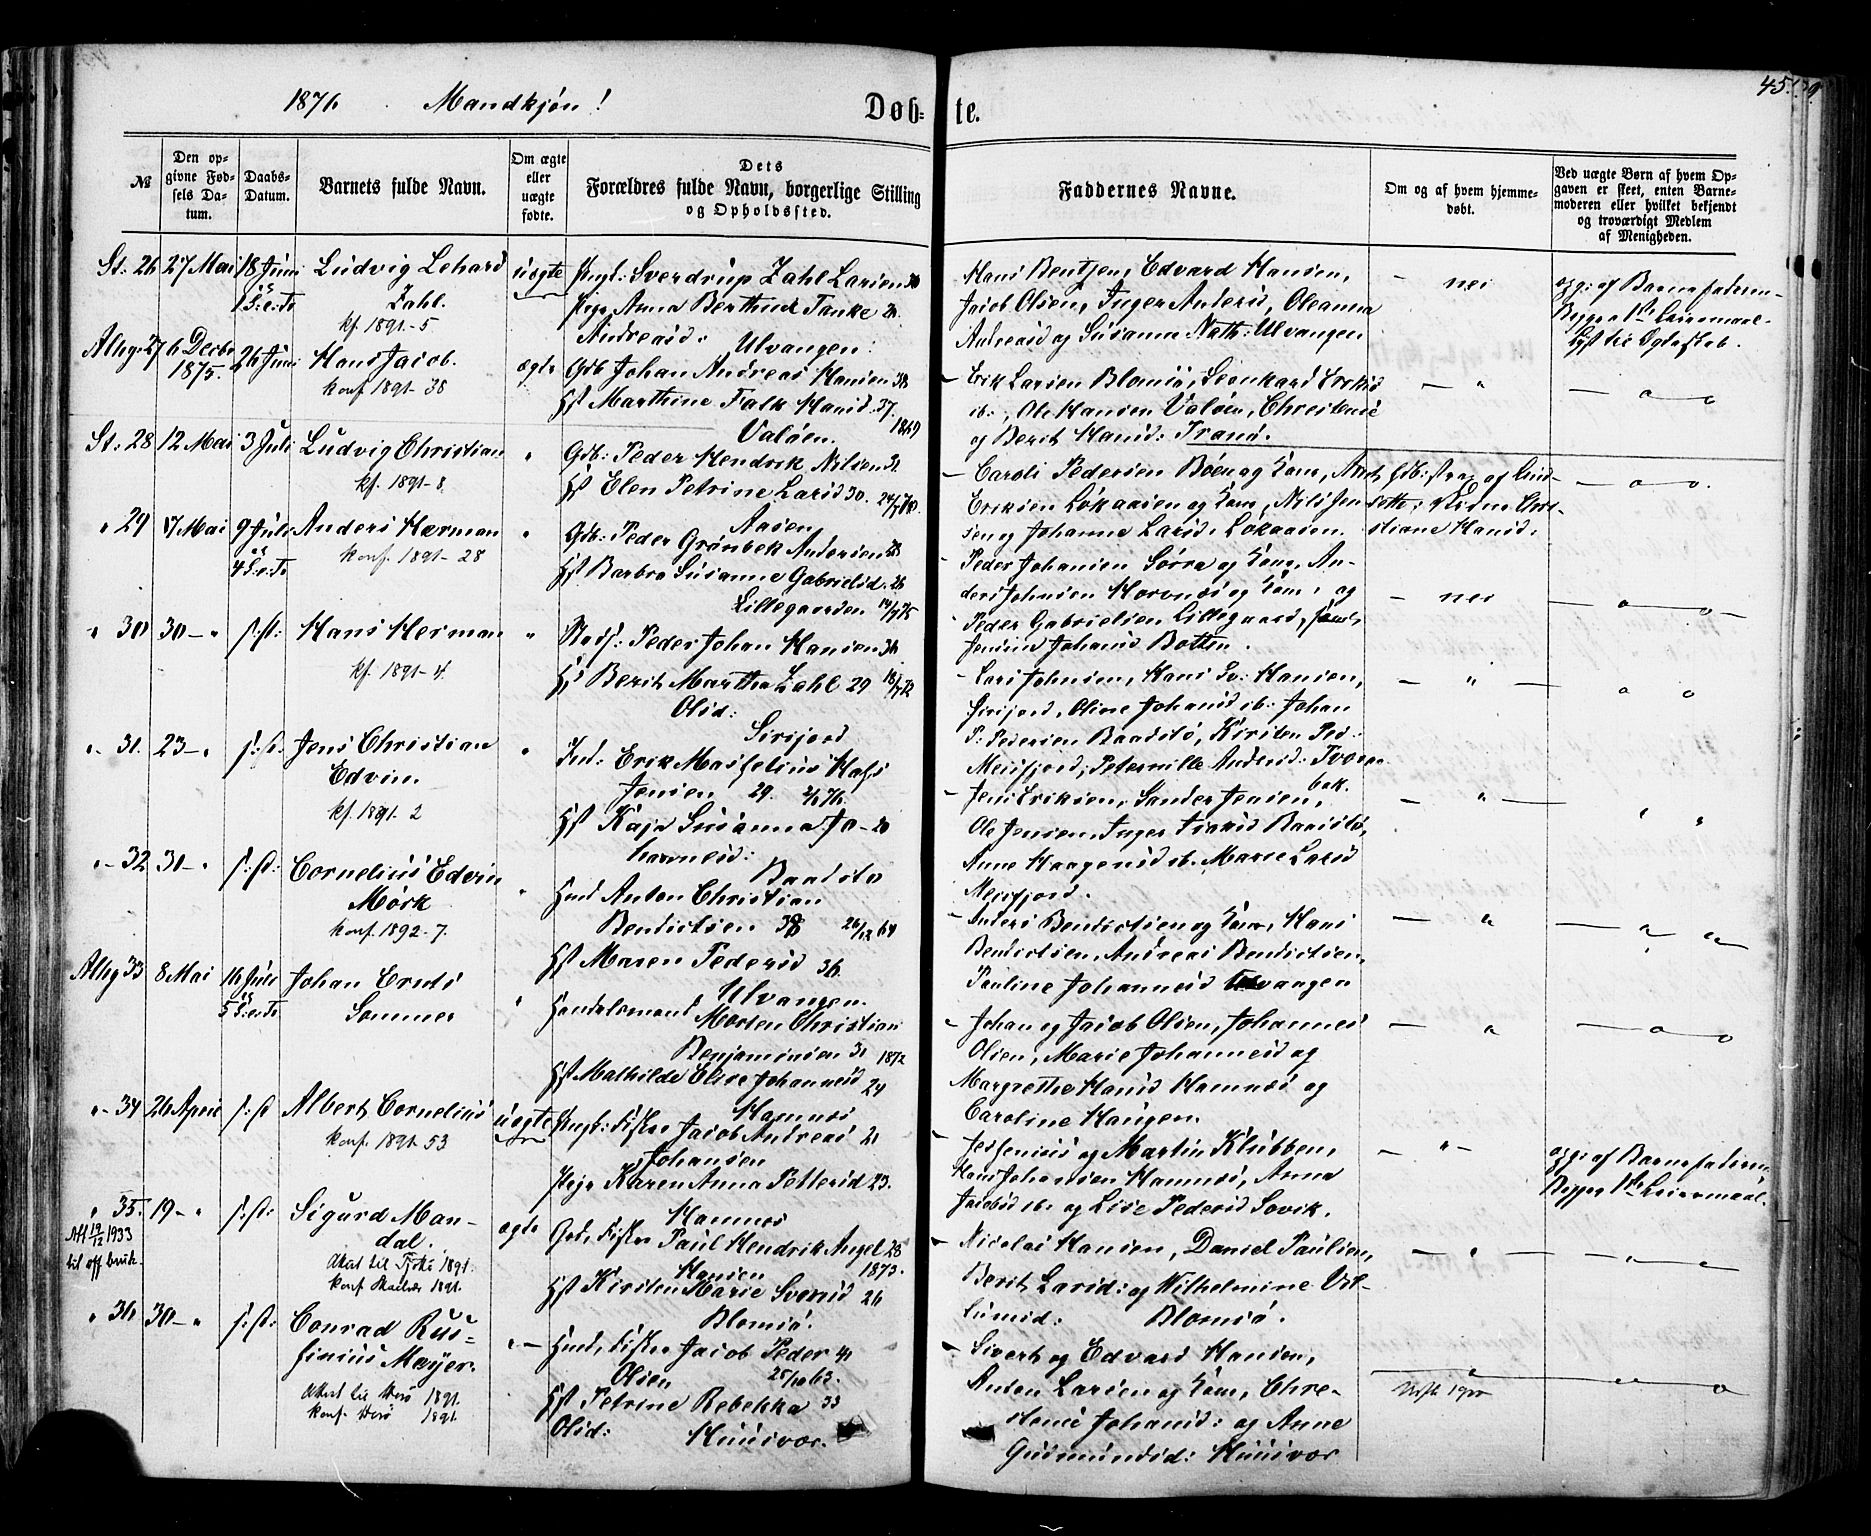 1876. Mandkjøn!
Døb-te.
45.
№
Den op-
givne Fød-
sels Da-
tum.
Daabs-
Datum.
Barnets fulde Navn.
Om ægte
eller
uægte
fødte.
Dets
Forældres fulde Navn, borgerlige Stilling
og Opholdssted.
Faddernes Navne.
Om og af hvem hjemme-
døbt.
Ved uægte Børn af hvem Op-
gaven er skeet, enten Barne-
moderen eller hvilket bekjendt
og troværdigt Medlem
af Menigheden.
St: 26 27 Mai 18 Juni
1 S: e: Tr
Ludvig Lehard
Zahl.
kf. 1891-5
uægte
Ungk: Sverdrup Zahl Larsen 20
Pige Anna Berthine Tanke 21
Andreasd: Ulvangen:
Hans Bentsen, Edvard Hansen,
Jacob Olsen, Inger Andersd, Oleanna
Andreasd og Susanna Nath: Ulvangen
- nei
opg: af Barnefaderen
Begges 1ste Leiermaal.
Alhg: 27 6 Decbr
1875. 26 Juni
Hans Jacob.
konf 1891-38
ægte
Gdb Johan Andreas Hansen 38
Hst Marthine Falk Hansd. 37.
Valøen. 1869
- Erik Larsen Blomsø, Leonhard Eriksen
ib:, Ole Hansen Valøen, Christense
og Berit Hansd: Tranø.
St: 28 12 Mai 3 Juli
Ludvig Christian
kf. 1891-8
Gdb: Peder Hendrik Nilsen 32
Hst Elen Petrine Larsd 30.
Aasen
- Caroli Pedersen Bøen og Kone,
Eriksen Løkaasen og Kone, Nils Jen-
sen og Johanna Larsd. Løkaasen.
" 29 17 Mai 9 Juli
4 S: e: Tr
Anders Hærman
konf. 1891-28
Gdb: Peder Grønbek Andersen 28
Hst Barbra Susanne Gabrielsd. 26
Lillegaarden 14/7 75
- Peder Johansen Sørra og Kone, An-
ders Johnsen Horvnæs og Kone, og
Peder Gabrielsen Lillegaard,
Jensine Johansd Botten.
- nei
" 30 30 - " s: st:
Hans Herman
kf. 1891-4.
Peder Johan Hansen 36
Hst Berit Martha Zahl 29
Olsd:
Sirijord
- Lars Johnsen, Hans Hansen,
Sirijord, Oline Johansd ib: Johan
P: Pedersen Baadstø, Kirsten Ped:
Meisfjord, Peternille Andersd: Tveraa-
bak.
" 31. 23 - " s: st:
Jens Christian
Edvin.
kf. 1891-2
Ind: Erik
Jensen 29.
Hst Kaja Susanna Jo- 20
hannesd:
Baadstø
- Jens Eriksen, Sander Jensen,
Ole Jensen, Inger Baadstø,
Anne Haagensd ib. Marie Larsd
Meisfjord.
" 32 30 - " s: st:
Cornelius Edvin
Mørk
konf. 1892-7.
Hmd Anton Christian
Bendictsen
Hst Maren Pedersd 36.
Ulvangen.
- Anders Bendictsen og Kone, Hans
Bendictsen, Andreas Bendictsen,
Pauline Johannesd Ulvangen
Alhg 33 8 Mai 16 Juli
5 S: e: Tr
Johan Ernts
Sommer
Handelsmand
Morten Christian
Benjaminsen 31 1872
Hst Mathilde Elise Johannesd 24
Hamnæs
- Johan og Jacob Olsen, Johannes
Olsen, Marie Johannesd og
Margrethe Hansd Hamnæs og
Caroline Haugen.
" 34 26 April s: st
Albert Cornelius
konf. 1891. 53
uægte
Ungk: Fisker Jacob Andreas 21
Johansen
Pige Karen Anna Pettersd 23.
Hamnæs
og Martin Klubben,
Hans Johansen Hamnæs, Anna
Jacobsd ib: og Lise Pedersd Sovik.
opg: af Barnefaderen
Begges 1ste Leiermaal.
" 35. 19 - " s: st:
Att 19/12 1933
til off bruk.
Sigurd Man-
dal.
Attest til Tjøtta 1891.
konf 1891.
ægte
Fisker Paul Hendrik Angel 28
Hansen 1873.
Hst Kirsten Marie Svensd 26
Blomsø.
- Nicolai Hansen, Daniel Paulsen,
Berit Larsd: og Wilhelmine Vil-
lumsd: Blomsø.
" 36 30 - " s: st:
Conrad Rus-
finius Meyer.
Attest til Herø 1891.
konf. Herø 1891.
Hmd, Fisker Jacob Peder 41
Olsen
Hst Petrine Rebekka 33
Olsd: Huusvær.
- Sivert og Edvard Hansen,
Anton Larsen og Kone, Chre-
stense Johansd: og Anne
Gudmundsd: Huusvær